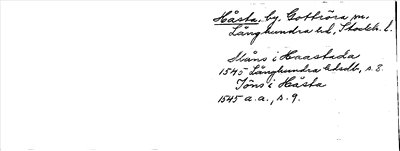 Håsta, by, Gottröra sn.
Långhundra hd, Stockh. l.
Måns i Haastada
1545 Långhundra hds db, s. 8.
Jöns i Håsta
1545 a.a., s. 9.